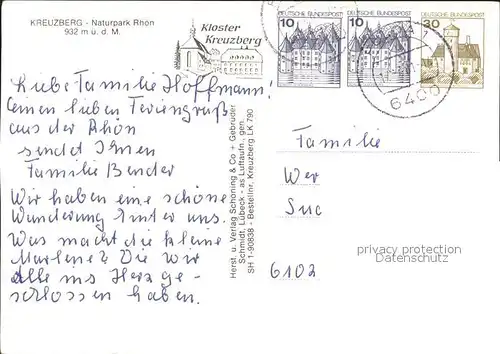 KREUZBERG - Naturpark Rhön
932 m ü. d. M.
Kloster
Kreuzberg
10 DEUTSCHE BUNDESPOST
10 DEUTSCHE BUNDESPOST
30 DEUTSCHE BUNDESPOST
6400
Liebe Familie Hoffmann!
Einen lieben Feriengruß
aus der Rhön
sendet Ihnen
Familie Bender
Wir haben eine schöne
Wanderung hinter uns.
Was macht die kleine
Marlene? Die wir
alle ins Herz ge-
schlossen haben.
Herst. u. Verlag Schöning & Co + Gebrüder
Schmidt, Lübeck - as Luftaufn., gen.
SH 1-90838 - Bestellnr. Kreuzberg LK 790
Familie
Wer
Suc
6102
privacy protection
Datenschutz AK-Ansichtskarten.de